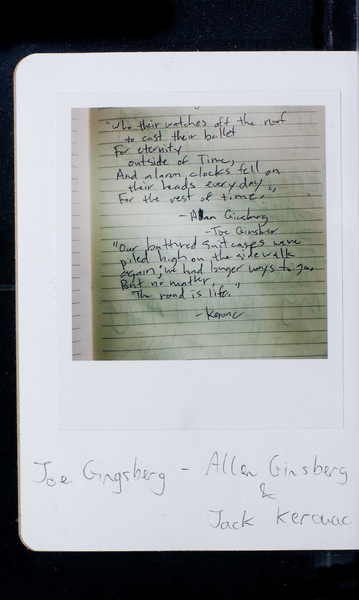 "Who their watches off the roof
to cast their ballet
For eternity
outside of Time,
And alarm clocks fell on
their heads everyday
For the rest of time."
- Allan Ginsberg
- Joe Ginsber
"Our battured suitcases were
piled high on the sidewalk
again; we had longer ways to go.
But no matter,
The road is life."
- Kerouac
Joe Gingsberg - Allen Ginsberg
&
Jack Kerouac